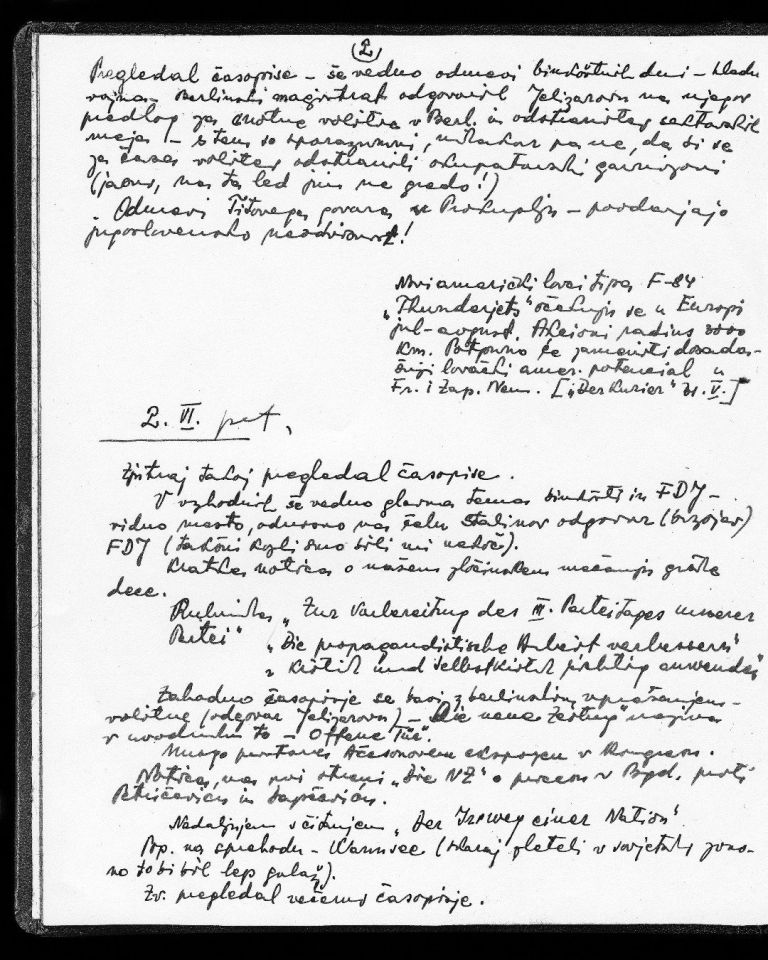 (2)
Pregledal časopise – še vedno odmevi binkoštnih dni – hladna
vojna. Berlinski magistrat odgovoril Jelizarovu na njegov
predlog za enotne volitve v Berl. in odstranitev sektorskih
meja – s tem so sporazumni, nikakor pa ne, da bi se
za časa volitev odstranili okupatorski garnizoni
(jasno, na ta led jim ne gredo!)
Odmevi Titovega govora v Prokuplju – poudarjajo
jugoslovensko neodvisnost!
Novi američki lovci tipa F-84
„Thunderjets" očekuju se u Europi
jul-avgust. Akcioni radius 3000
km. Potpuno će zameniti dosada-
šnji lovački amer. potencial u
Fr. i Zap. Nem. [„Der Kurier" 31. V.]
2. VI. pet.
Zjutraj takoj pregledal časopise.
V vzhodnih še vedno glavna tema binkošti in FDJ –
vidno mesto, odnosno na čelu Stalinov odgovor (brzojav)
FDJ (takšni kozli smo bili mi nekoč).
Kratka notica o našem zločinskem mečanju grške
dece.
Rubrika „Zur Vorbereitung des III. Parteitages unserer
Partei" „Die propagandistische Arbeit verbessern"
„Kritik und Selbstkritik richtig anwenden"
Zahodno časopisje se bavi z berlinskim vprašanjem –
volitve (odgovor Jelizarovu) – „Die neue Zeitung" naziva
v uvodniku to – Offene Tür.
Mnogo prostora Achesonovem ekspozeu v Kongresu.
Notica na prvi strani „Die NZ" o procesu v Bgd. proti
Petričeviću in
Nadaljujem s čitanjem „Der Irrweg einer Nation".
Pop. na sprehodu – Wannsee (skoraj zleteli v sovjetsko zono –
no to bi bil lep gulaž).
Zv. pregledal večerno časopisje.